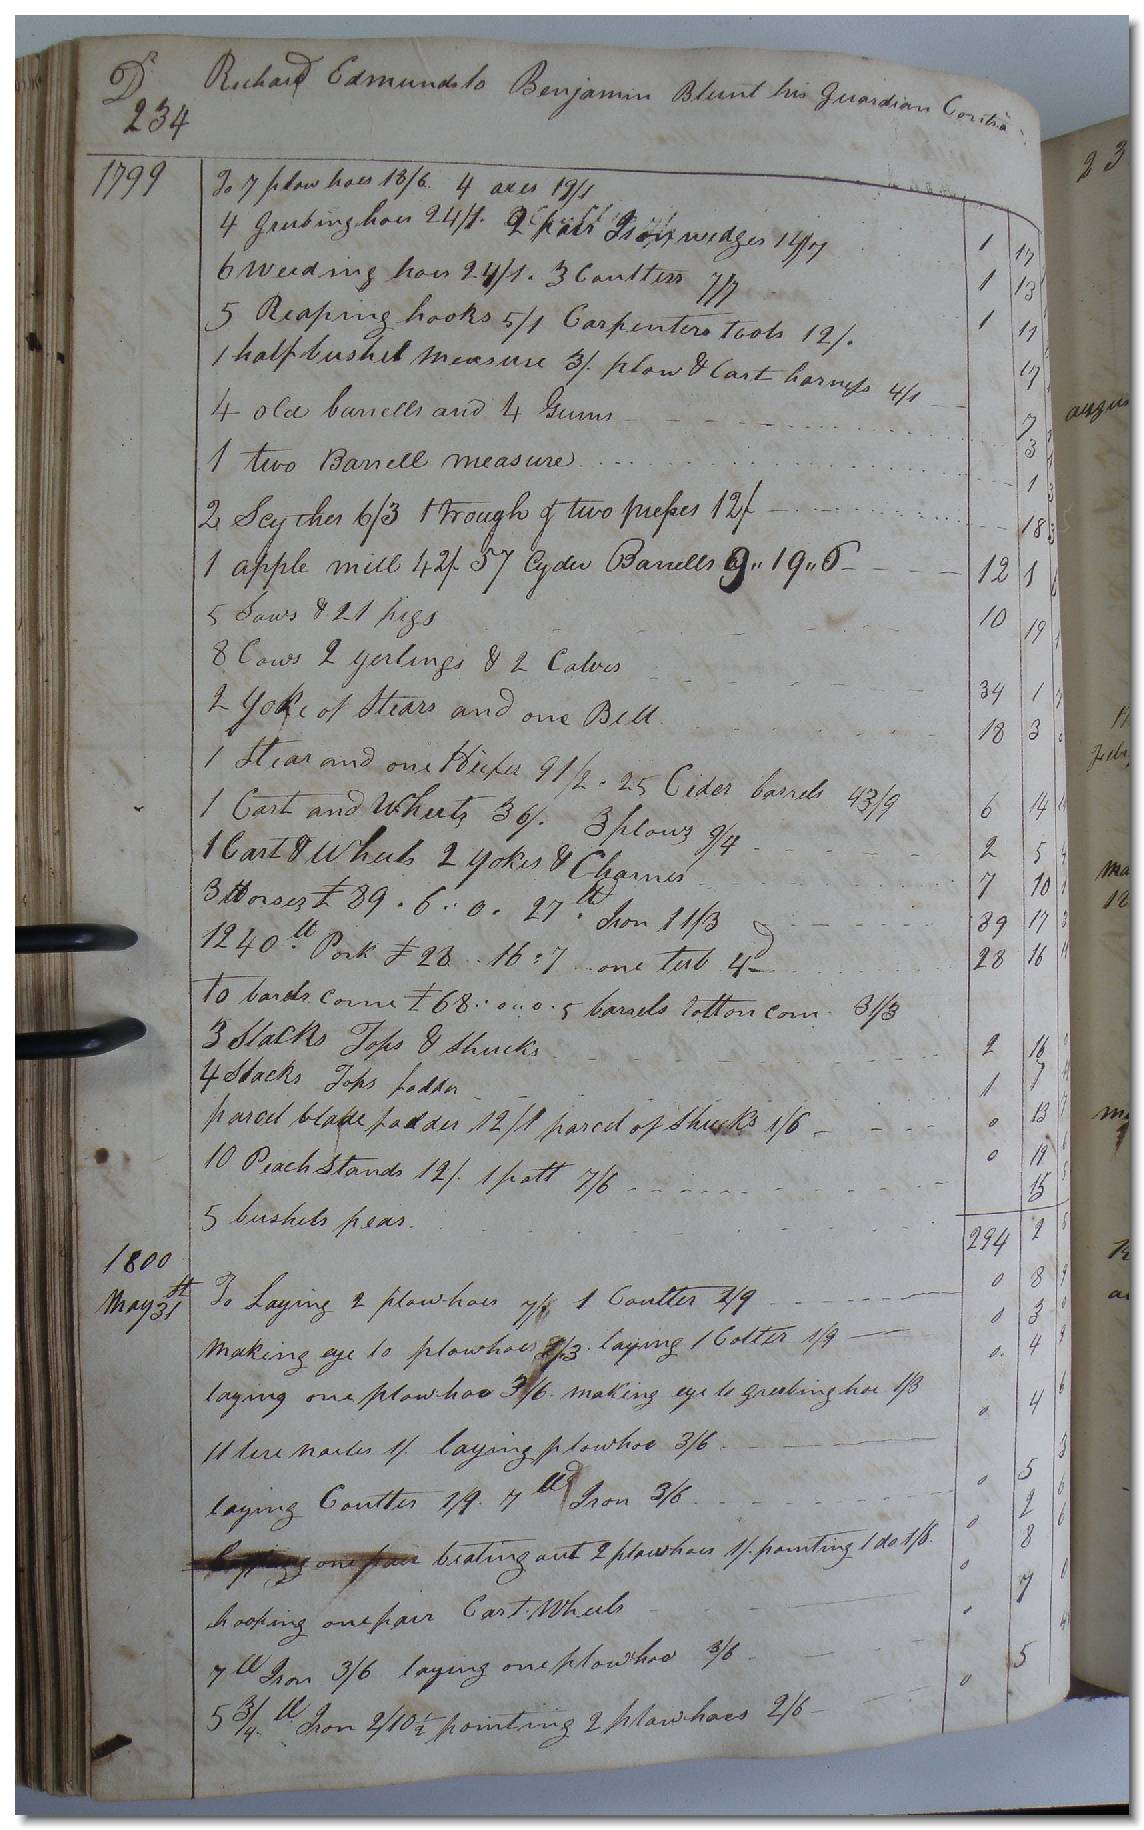 Dr Richard Edmunds to Benjamin Blunt his Guardian Contra
234
1799 To 7 plow hoes 18/6. 4 axes 19/1 1 17
4 Grubing hoes 24/1. 2 pair Iron wedges 14/7 1 13
6 Weeding hoes 24/1. 3 Coulters 7/7 1 11
5 Reaping hooks 5/1 Carpenters tools 12/. 17
1 half bushel measure 3/. plow & Cart harness 4/1 7
4 old barrells and 4 Gums 3
1 two Barrell measure 1
2 Scythes 6/3 1 trough & two presses 12/ 18 3
1 apple mill 42/. 57 Cyder Barrells 9,,19,,6 12 1 6
5 Sows & 21 pigs 10 19
8 Cows 2 yerlings & 2 Calves 34 1
2 Yoke of Stears and one Bell 18 3
1 Stear and one Heifer 91/2. 25 Cider barrels 43/9 6 14
1 Cart and Wheels 36/. 3 plows 9/4 2 5
1 Cart & Wheels 2 yokes & Charnes 7 10
3 Horses £89.6..0. 27 lb Iron 11/3 89 17 3
1240 lb Pork £28..16:7 one tub 4d 28 16 11
to bards. corne £68..0..0. 5 barrels rotten corn 31/3
3 Stacks Tops & Shucks 2 16
4 Stacks Tops fodder 1 7
parcel blade fodder 12/1 parcel of Shucks 1/6 0 13 7
10 Peach Stands 12/. 1 pott 7/6 0 19 6
5 bushels peas 15 5
294 2 8
1800
May 31st To Laying 2 plowhoes 7/ 1 Coulter 1/9 0 8 9
making eye to plowhoes 1/3. laying 1 Colter 1/9 0 3 0
laying one plowhoe 3/6. making eye to grubing hoe 1/3 0. 4 9
11 tire nailes 1/. laying plowhoe 3/6. 0 4 6
laying Coulter 1/9. 7 lb Iron 3/6 0 5 3
one pair beating out 2 plowhoes 1/. pointing 1 do 1/6. 0 2 6
hooping one pair Cart Wheels 0 8 6
7 lb Iron 3/6 laying one plowhoe 3/6 0 7
5 3/4 lb Iron 2/10 1/2 pointing 2 plowhoes 2/6 0 5 4
23